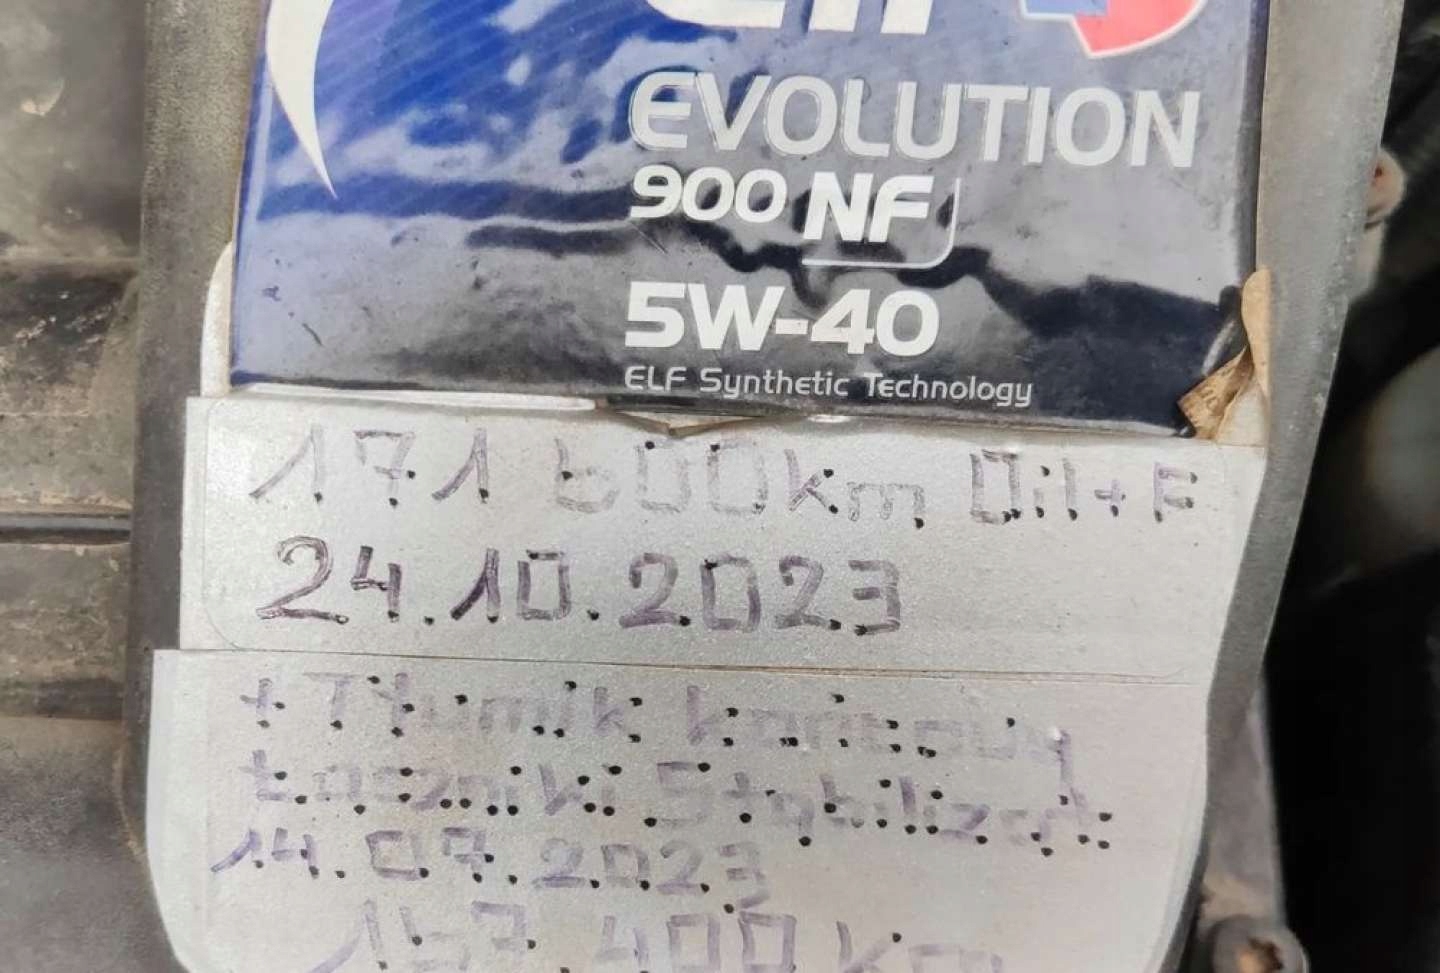 elf
EVOLUTION
900 NF
5W-40
ELF Synthetic Technology
171 600km Oil+F
24.10.2023
+ Tłumik końcowy
Łączniki Stabilizat.
14.07.2023
167 400 km